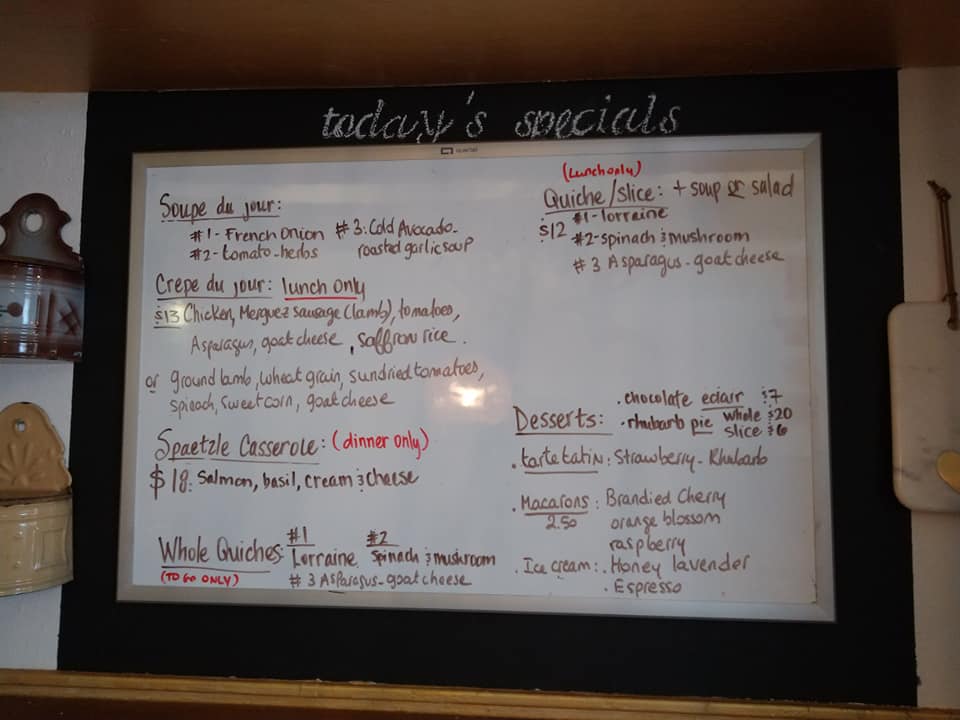 today's specials
Soupe du jour:
#1- French Onion
#2- tomato-herbs
#3: Cold Avocado-
roasted garlic soup
Crepe du jour: lunch only
$13 Chicken, Merguez sausage (lamb), tomatoes,
Asparagus, goat cheese, saffron rice.
or ground lamb, wheat grain, sundried tomatoes,
spinach, sweet corn, goat cheese
Spaetzle Casserole: (dinner only)
$18: Salmon, basil, cream & cheese
Whole Quiches: #1 Lorraine #2 Spinach & mushroom
(TO GO ONLY) #3 Asparagus-goat cheese
(Lunch only)
Quiche/slice: + soup or salad
$12 #1-lorraine
#2-spinach & mushroom
#3 Asparagus-goat cheese
Desserts: . chocolate eclair $7
. rhubarb pie whole $20
slice $6
. tarte tatin: Strawberry-Rhubarb
. Macarons: Brandied Cherry
2.50 orange blossom
raspberry
. Ice cream: . Honey lavender
. Espresso